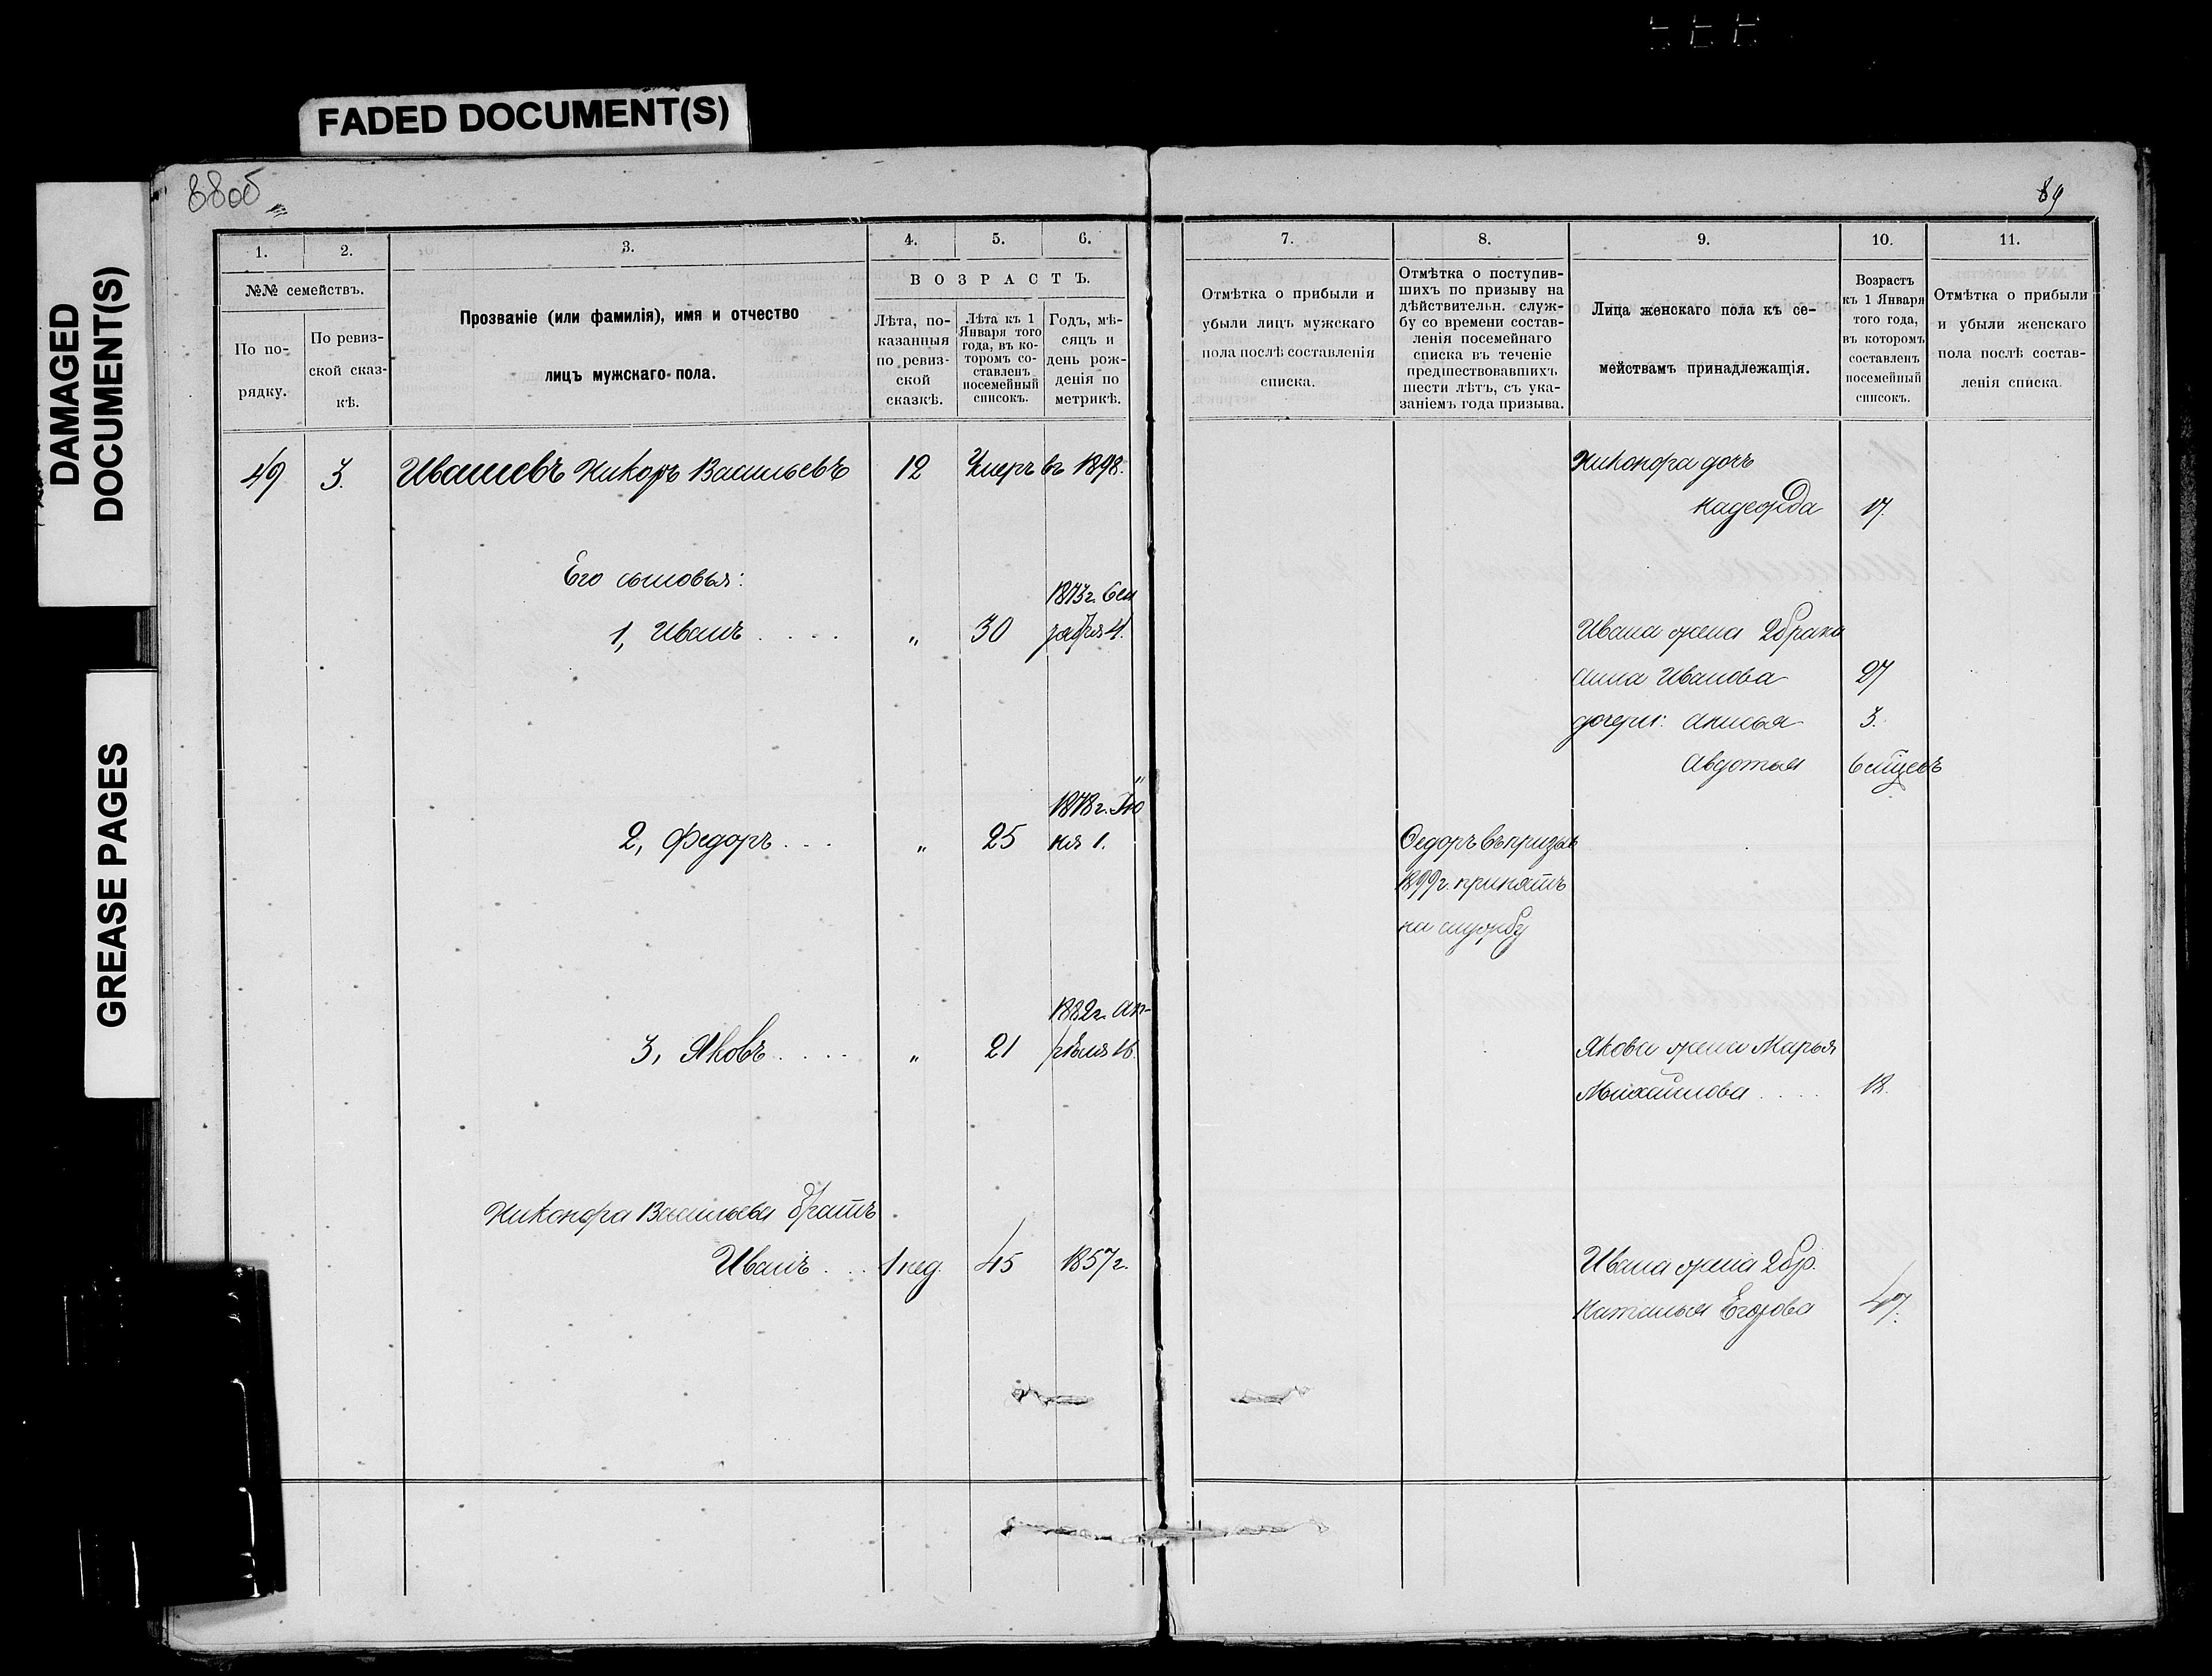 FADED DOCUMENT(S)
DAMAGED
DOCUMENT(S)
GREASE PAGES
88об
89
1.
2.
3.
4.
5.
6.
№№ семействъ.
По по-
рядку.
По ревиз-
ской сказ-
кѣ.
Прозваніе (или фамилія), имя и отчество
лицъ мужскаго пола.
ВОЗРАСТЪ.
Лѣта, по-
казанныя
по ревиз-
ской
сказкѣ.
Лѣта къ 1
Января того
года, въ ко-
торомъ со-
ставленъ
посемейный
списокъ.
Годъ, мѣ-
сяцъ и
день рож-
денія по
метрикѣ.
7.
8.
9.
10.
11.
Отмѣтка о прибыли и
убыли лицъ мужскаго
пола послѣ составленія
списка.
Отмѣтка о поступив-
шихъ по призыву на
дѣйствительн. служ-
бу со времени состав-
ленія посемейнаго
списка въ теченіе
предшествовавшихъ
шести лѣтъ, съ ука-
заніемъ года призыва.
Лица женскаго пола къ се-
мействамъ принадлежащія.
Возрастъ
къ 1 Января
того года,
въ которомъ
составленъ
посемейный
списокъ.
Отмѣтка о прибыли
и убыли женскаго
пола послѣ состав-
ленія списка.
49 3. Ивашевъ Никоръ Васильевъ 12 Умеръ въ 1898.
Никонора дочь
Надежда 17.
Его сыновья:
1, Иванъ .... „ 30 1873г. Сен
тября 4.
Ивана жена 2 брака
Анна Иванова 27
дочери: Анисья 3.
Авдотья 6 мѣцевъ
2, Федоръ ... „ 25 1878г. Ію
ня 1.
Федоръ въ призывъ
1899г. принятъ
на службу
3, Яковъ .... „ 21 1882г. Ап-
рѣля 16.
Якова жена Марья
Михайлова .... 18.
Никонора Васильева братъ
Иванъ ... 1 нед. 45 1857г.
Ивана жена 2 бр.
Наталья Егорова 47.